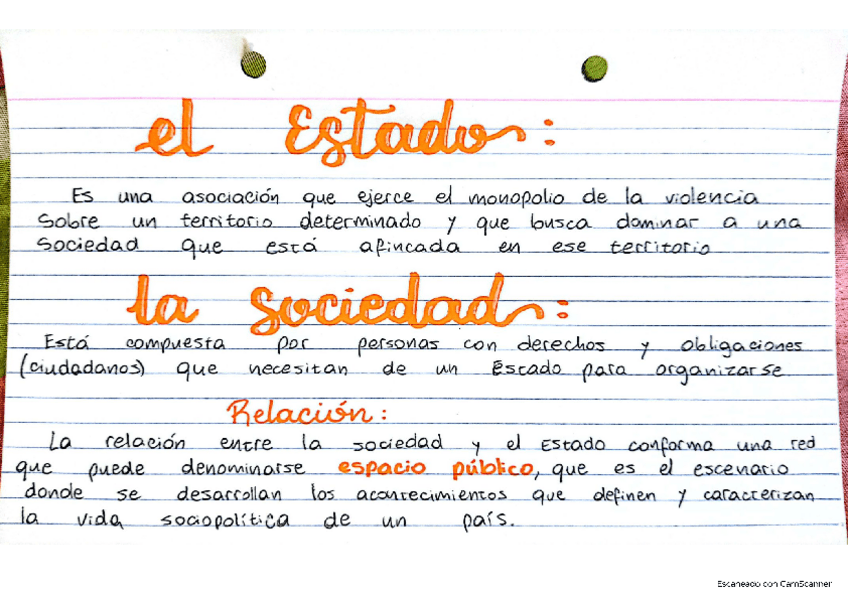 el Estado:
Es una asociación que ejerce el monopolio de la violencia
sobre un territorio determinado y que busca dominar a una
sociedad que está afincada en ese territorio
la sociedad:
Está compuesta por personas con derechos y obligaciones
(ciudadanos) que necesitan de un Estado para organizarse
Relación:
La relación entre la sociedad y el Estado conforma una red
que puede denominarse espacio público, que es el escenario
donde se desarrollan los acontecimientos que definen y caracterizan
la vida sociopolítica de un país.
Escaneado con CamScanner